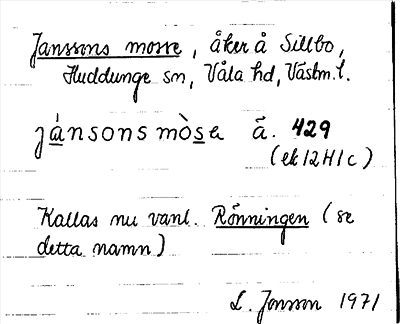 Janssons mosse, åker å Sillbo,
Huddunge sn, Våla hd, Västm. l.
jánsons mòsɛ å. 429
(ek 12H1c)
Kallas nu vanl. Rönningen (se
detta namn)
L. Jonsson 1971